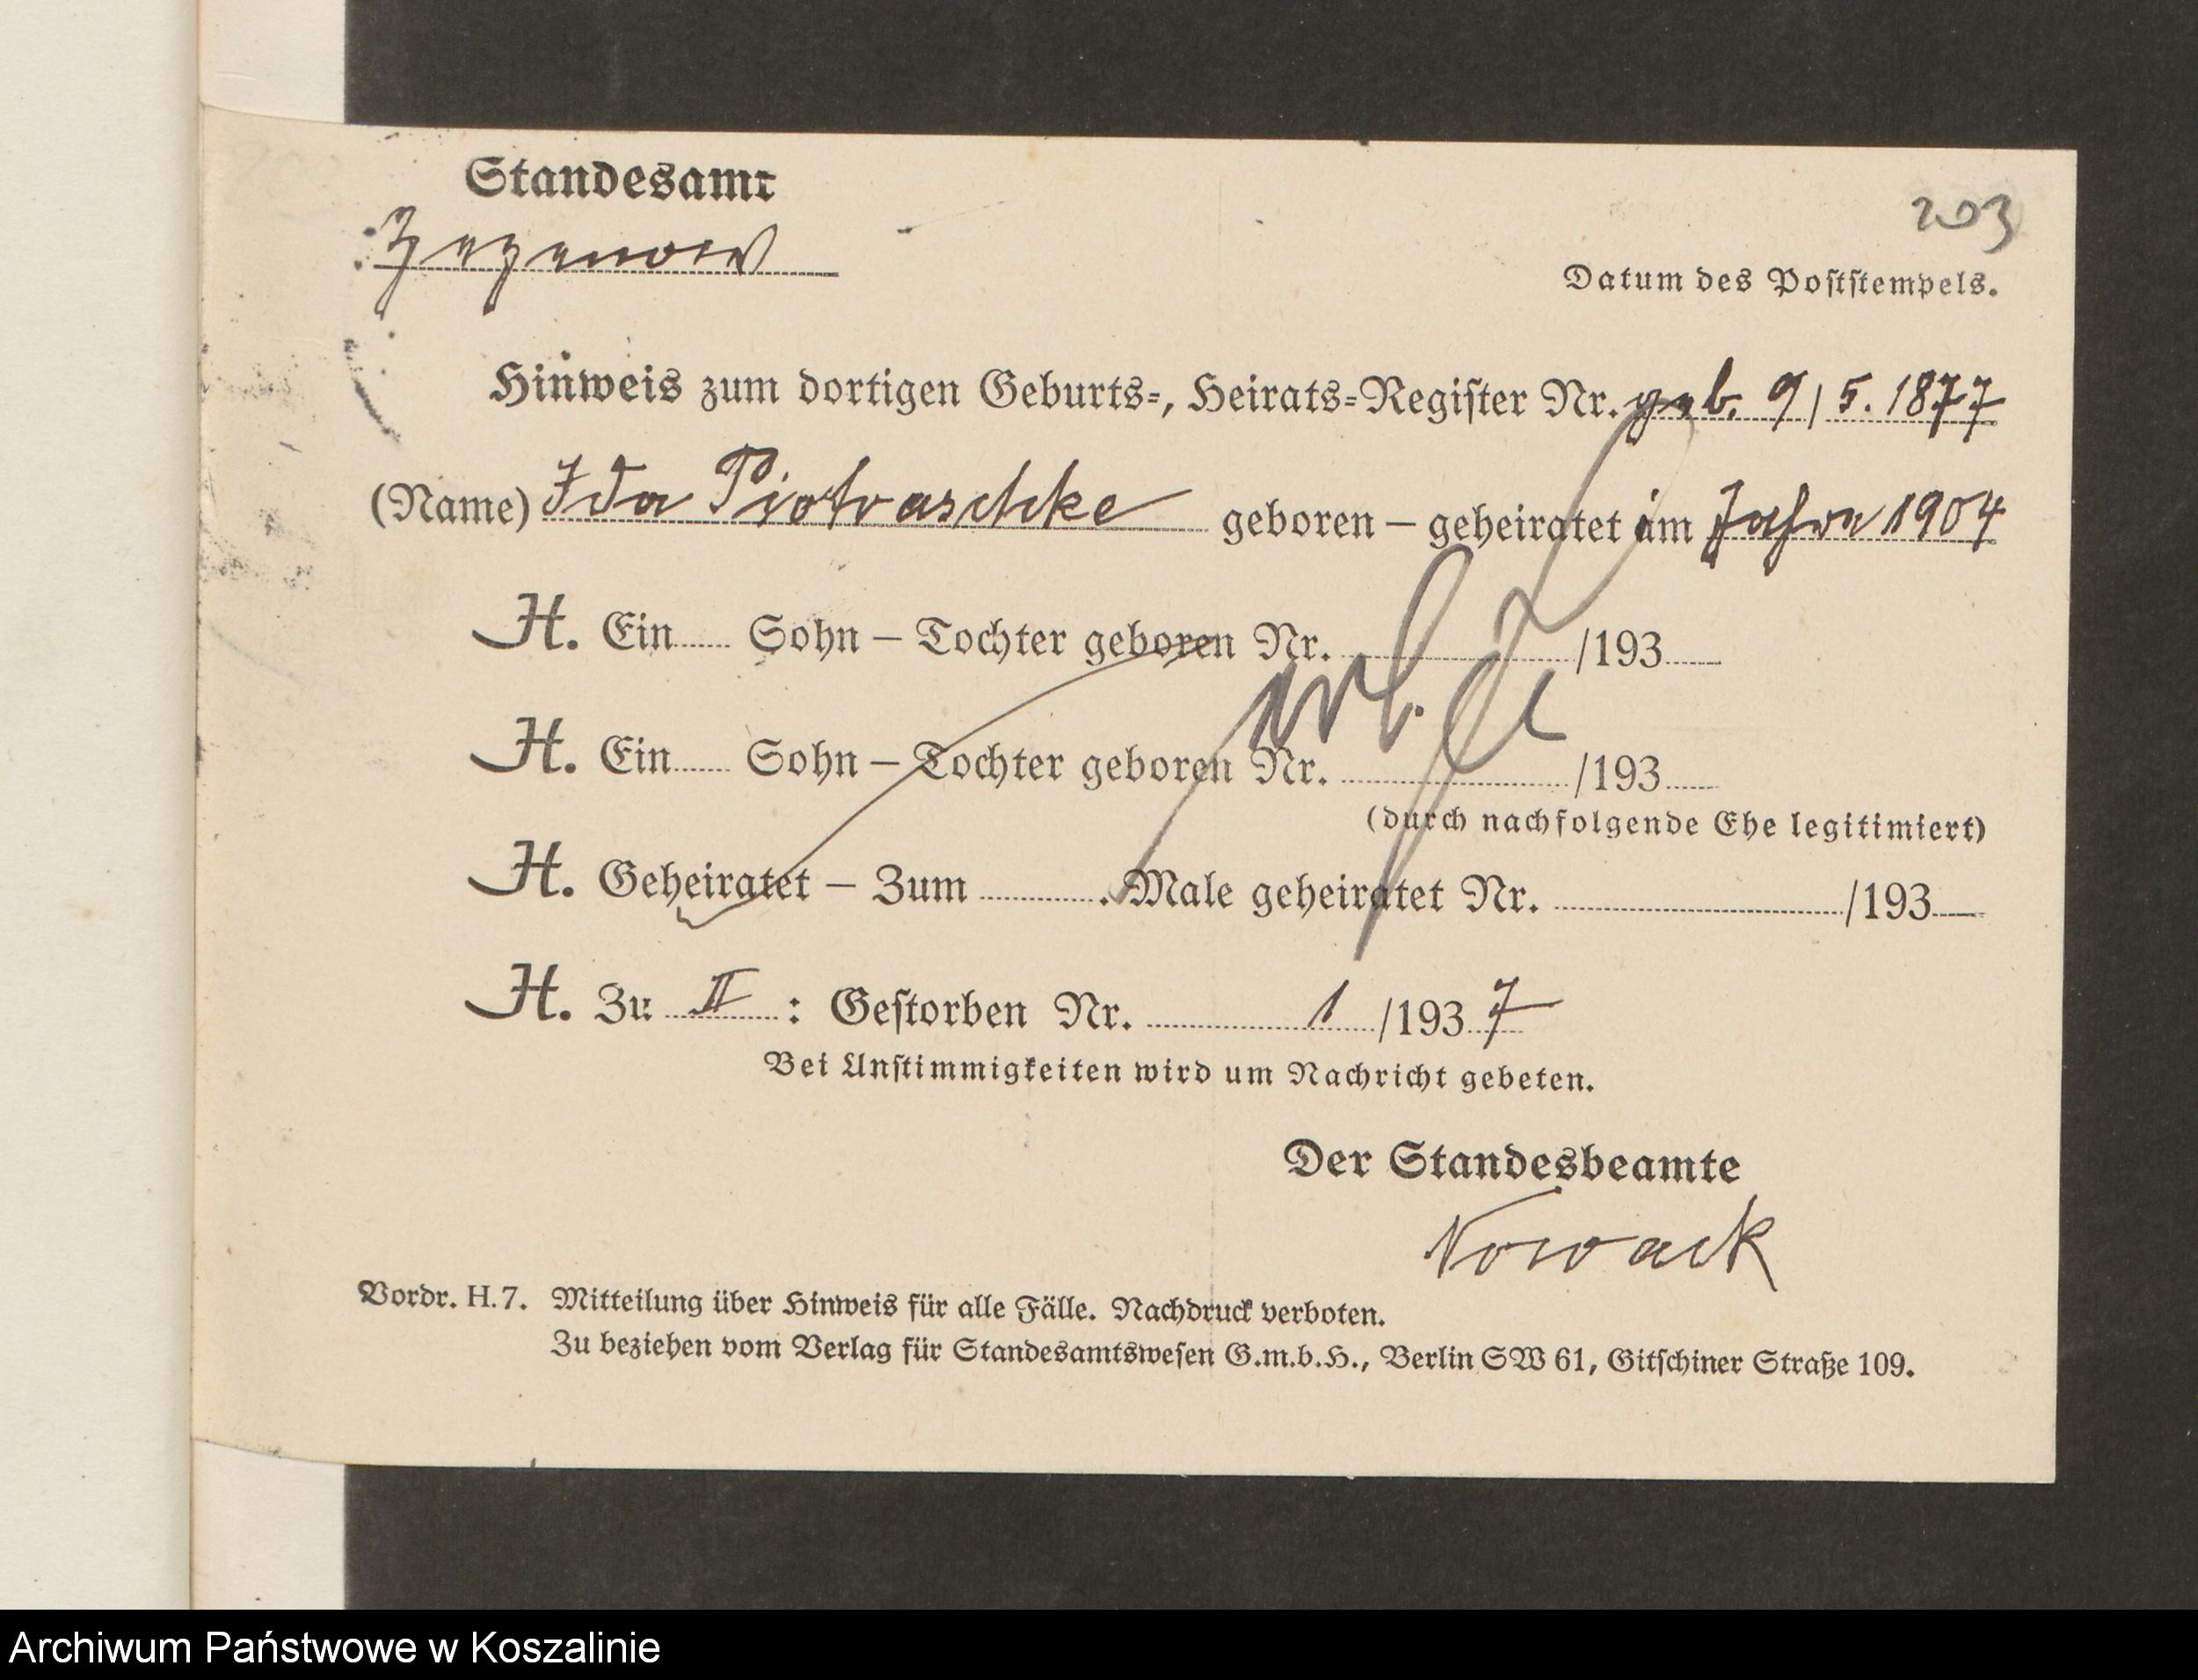 Standesamt
203
Zezenow
Datum des Poststempels.
Hinweis zum dortigen Geburts-, Heirats-Register Nr. geb. 9/5. 1877
(Name) Ida Piotraschke geboren – geheiratet im Jahre 1904
H. Ein Sohn – Tochter geboren Nr. /193
H. Ein Sohn – Tochter geboren Nr. /193
(durch nachfolgende Ehe legitimiert)
H. Geheiratet – Zum . Male geheiratet Nr. /193
H. Zu II : Gestorben Nr. 1 /1937
Bei Unstimmigkeiten wird um Nachricht gebeten.
Der Standesbeamte
Nowack
Vordr. H. 7. Mitteilung über Hinweis für alle Fälle. Nachdruck verboten.
Zu beziehen vom Verlag für Standesamtswesen G.m.b.H., Berlin SW 61, Gitschiner Straße 109.
Archiwum Państwowe w Koszalinie